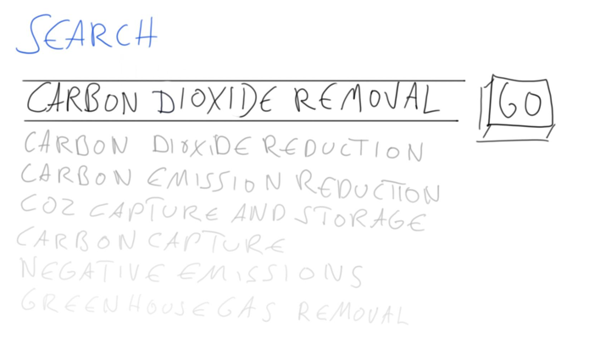 SEARCH
CARBON DIOXIDE REMOVAL
GO
CARBON DIOXIDE REDUCTION
CARBON EMISSION REDUCTION
CO2 CAPTURE AND STORAGE
CARBON CAPTURE
NEGATIVE EMISSIONS
GREENHOUSE GAS REMOVAL